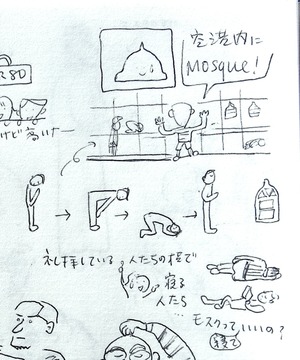 空港内に
MOSQUE!
80
けど高いナー
礼拝している人たちの横で
寝る
人たち
モスクっていいの?